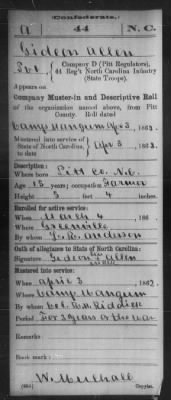 Confederate.
A 44 N.C.
Gideon Allen
Pvt, Company D (Pitt Regulators),
44 Reg't North Carolina Infantry
(State Troops).
Appears on
Company Muster-in and Descriptive Roll
of the organization named above, from Pitt
County. Roll dated
Camp Mangum Apr 3, 1862.
Mustered into service of
State of North Carolina,
to date
Apr 3, 1862.
Description:
Where born Pitt Co. N.C.
Age years; occupation Farmer
Height 5 feet 4 inches.
Enrolled for active service:
When March 4, 186
Where Greenville
By whom
Oath of allegiance to State of North Carolina:
Signature Gideon Allen
Mustered into service:
When April 3, 1862.
Where Camp Mangum
By whom Col.
Period For 3 years or the war
Remarks:
Book mark:
W. Mulhall
Copyist.